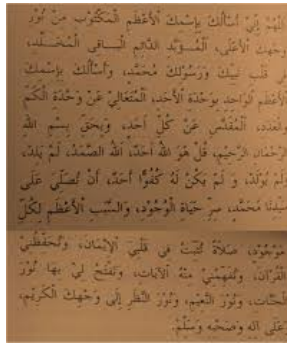 اَللّٰهُمَّ إِنِّيْ أَسْأَلُكَ بِإِسْمِكَ الْأَعْظَمِ الْمَكْتُوْبِ مِنْ نُوْرِ
وَجْهِكَ الْأَعْلَى، الْمُؤَبَّدِ الدَّائِمِ الْبَاقِى الْمُخَلَّدِ،
فِى قَلْبِ نَبِيِّكَ وَرَسُوْلِكَ مُحَمَّدٍ، وَأَسْأَلُكَ بِإِسْمِكَ
الْأَعْظَمِ الْوَاحِدِ بِوَحْدَةِ الْأَحَدِ، الْمُتَعَالِيْ عَنْ وَحْدَةِ الْكَمِّ
وَالْعَدَدِ، الْمُقَدَّسِ عَنْ كُلِّ أَحَدٍ، وَبِحَقِّ بِسْمِ اللهِ
الرَّحْمَانِ الرَّحِيْمِ، قُلْ هُوَ اللهُ أَحَدٌ، اَللهُ الصَّمَدُ، لَمْ يَلِدْ،
وَلَمْ يُوْلَدْ، وَ لَمْ يَكُنْ لَهُ كُفُوًا أَحَدٌ، أَنْ تُصَلِّيَ عَلَى
سَيِّدِنَا مُحَمَّدٍ، سِرِّ حَيَاةِ الْوُجُوْدِ، وَالسَّبَبِ الْأَعْظَمِ لِكُلِّ
مَوْجُوْدٍ، صَلَاةً تُثَبِّتُ فِى قَلْبِيَ الْإِيْمَانَ، وَتُحَفِّظُنِيْ
الْقُرْآنَ، وَتُفَهِّمُنِيْ مِنْهُ الْآيَاتِ، وَتَفْتَحُ لِيْ بِهَا نُوْرَ
الْجَنَّاتِ، وَنُوْرَ النَّعِيْمِ، وَنُوْرَ النَّظَرِ إِلَى وَجْهِكَ الْكَرِيْمِ،
وَعَلَى آلِهِ وَصَحْبِهِ وَسَلِّمْ.